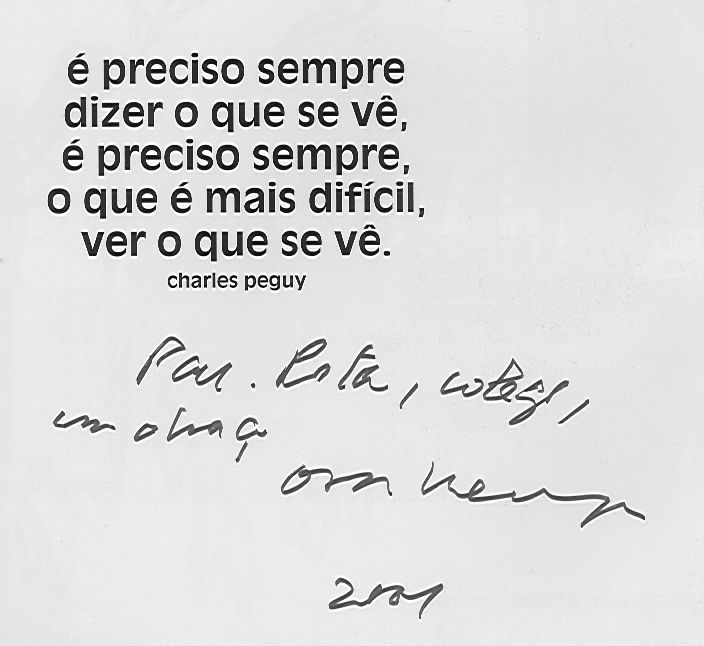 é preciso sempre
dizer o que se vê,
é preciso sempre,
o que é mais difícil,
ver o que se vê.
charles peguy
um abraço
2001